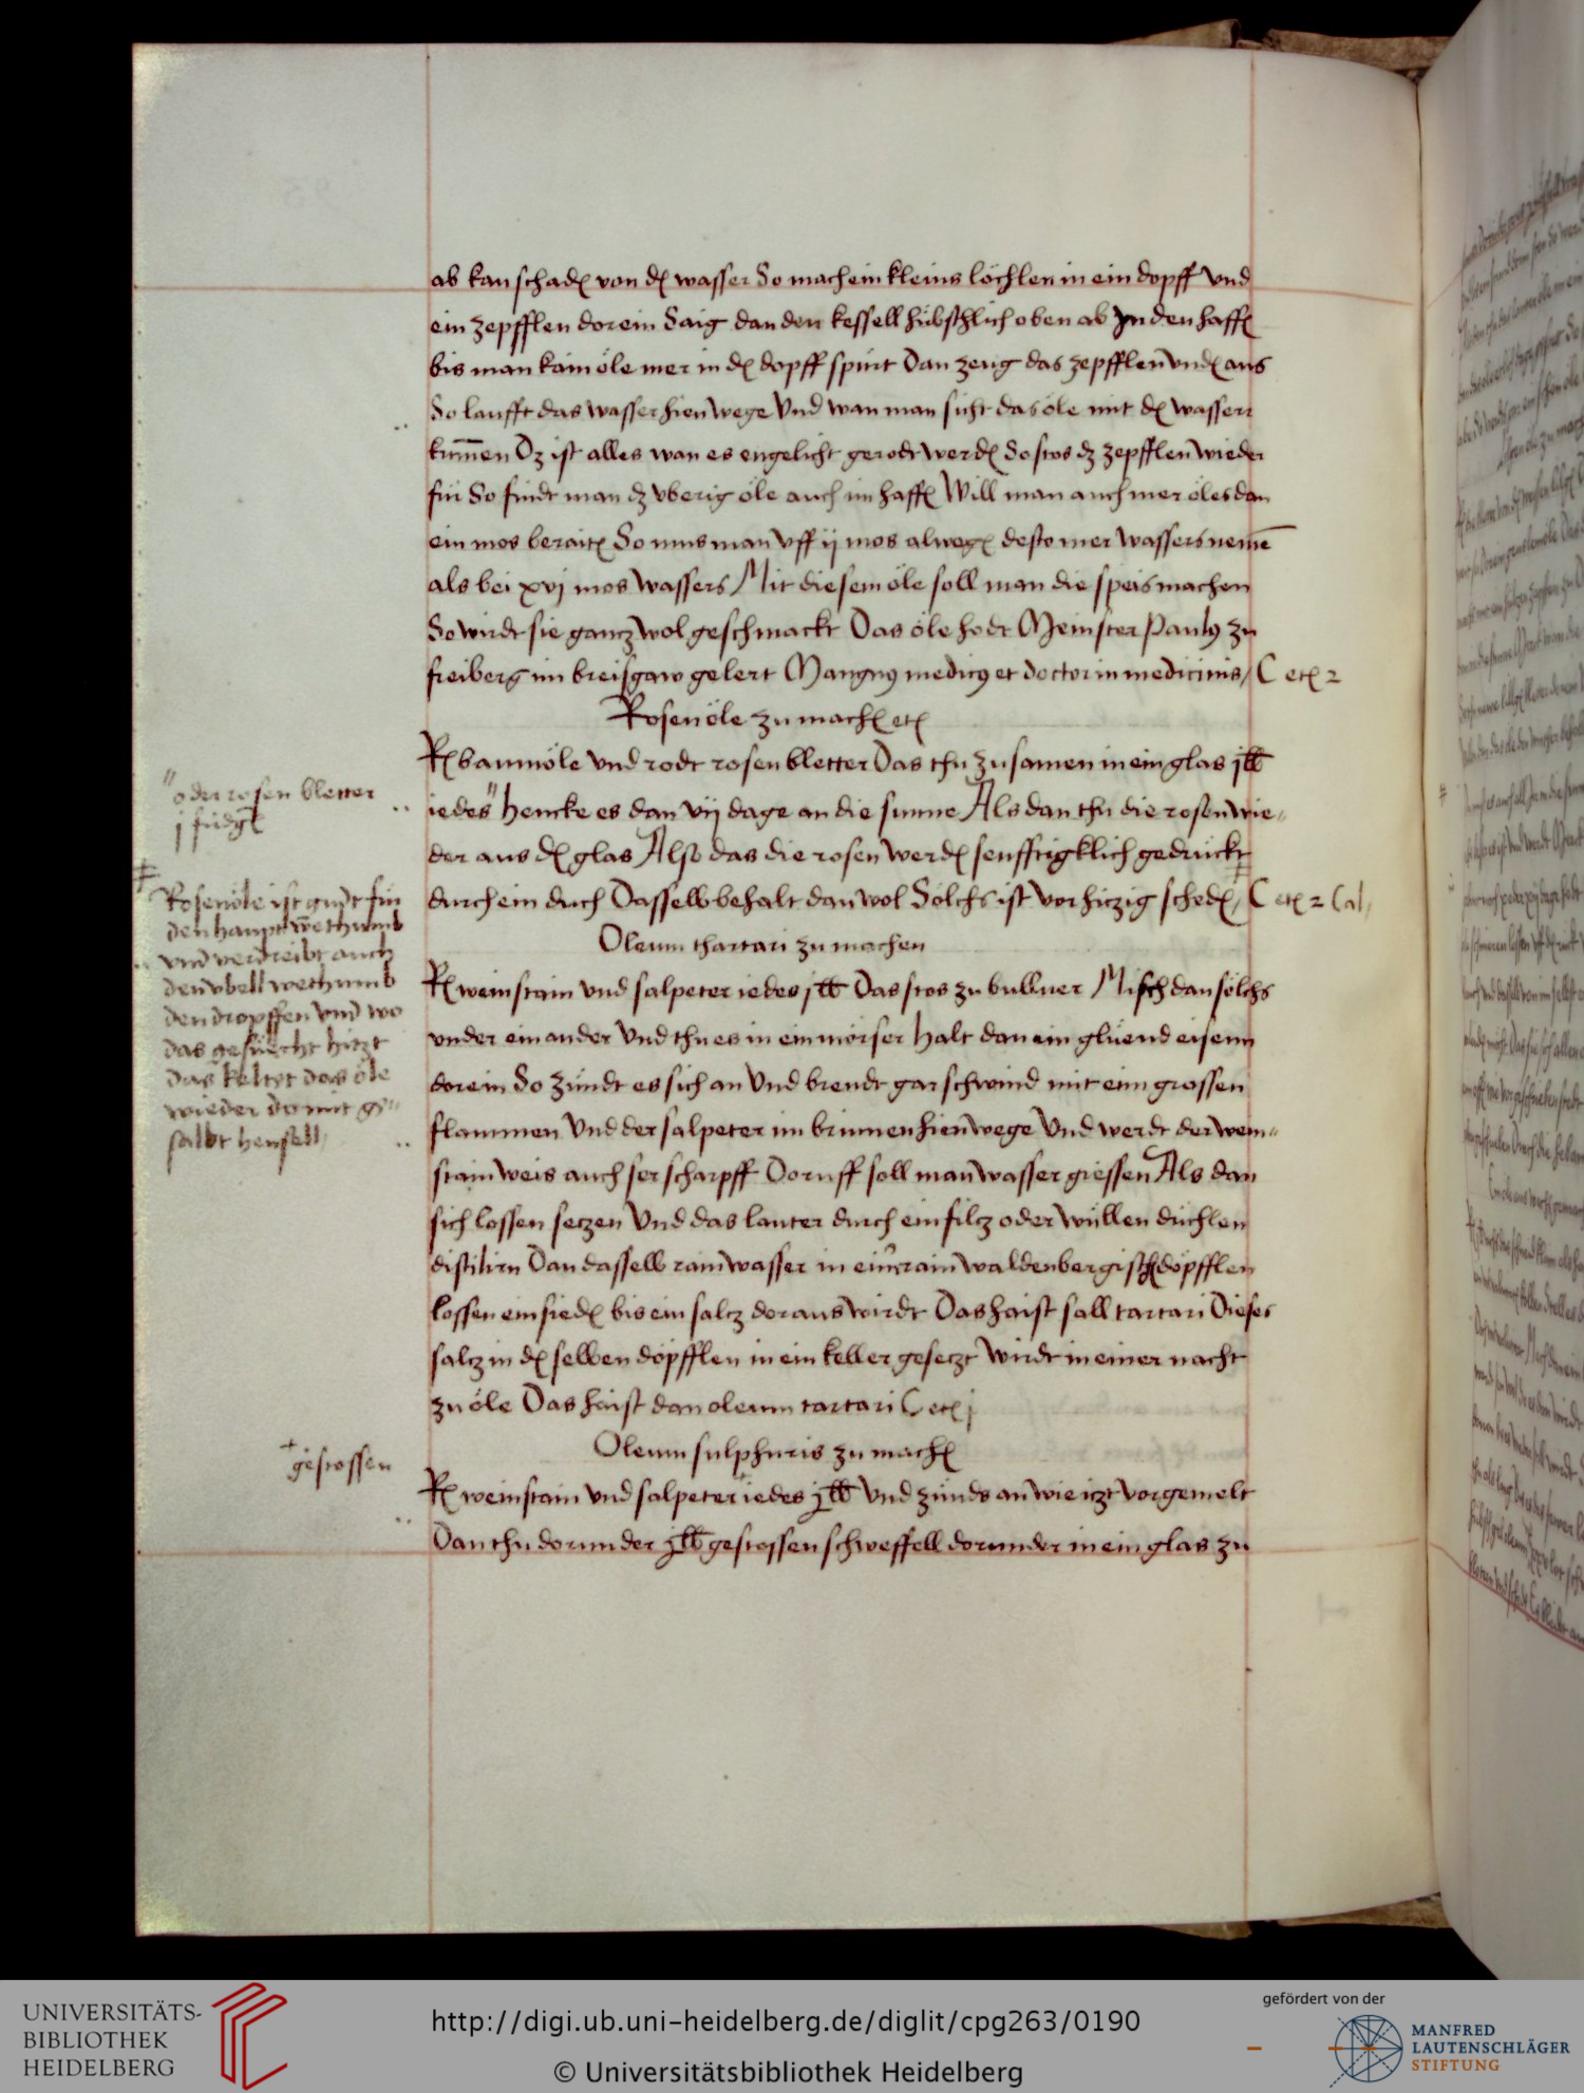 ab kan schadt von dem wasser So mach ein kleins löchlen in ein dopff Vnd
ein zepfflen dorein Saig dan den kessell hübschlich oben ab In den haffen
bis man kain öle mer in dem dopff spürt Dan zeug das zepfflen vnden aus
So laufft das wasser hien wege Vnd wan man sicht das öle mit dem wasserr
kummen Dz ist alles wan es engelicht gerodt werden So stos dz zepfflen wieder
für So findt man dz vberig öle auch im haffen Will man auch mer öles dan
ein mos beraiten So mus man vff ij mos alwegen desto mer wassers neme
als bei xvj mos wassers Mit diesem öle soll man die speis machen
So wirdt sie gancz wol geschmackt Das öle hodt Meinster Paulus zu
freiberg im breisgaw gelert Mangnus medicus et doctor in medicinis / C etc 2
Rosen öle zu machen etc
Rc baumöle vnd rodt rosen bletter Das thu zusamen in ein glas j lb
iedes" Hencke es dan vij dage an die sunne Als dan thu die rosen wie-
der aus dem glas Also das die rosen werden senfftigklich gedrückt
durch ein duch Dasselb behalt dan wol Sölchs ist vor hiczig scheden / C etc 2
"oder rosen bletter
j
Rosenöle ist gudt für
den haupt wethumb
vnd verdreibt auch
den vbell wethumb
den dropffen vnd wo
das gesücht hitzt
das keltet das öle
wieder do mit ge-
salbt
Oleum thartari zu machen
Rc weinstain vnd salpeter iedes j lb Das stos zu bulluer Misch dan sölchs
vnder ein ander Vnd thu es in ein mörser Halt dan ein glüend eisenn
dorein So zündt es sich an Vnd brendt gar schwind mit eim grossen
flammen Vnd der salpeter im brinnen hien wege Vnd werdt der wein-
stain weis auch ser scharpff Doruff soll man wasser giessen Als dan
sich lossen seczen Vnd das lauter durch ein filcz oder wüllen düchlen
distilirn Dan dasselb rain wasser in eim rain waldenbergischen döpfflen
lossen ein sieden bis ein salcz doraus wirdt Das haist sall tartari Dieses
salcz in dem selben döpfflen in ein keller gesetzt Wirdt in einer nacht
zu öle Das haist dan oleum tartari C etc j
Oleum sulphuris zu machen
+ gestossen
Rc weinstain vnd salpeter iedes j lb Vnd zünds an wie itzt vorgemelt
Dan thu dorunder j lb gestossen schweffell dorunder in ein glas zu
UNIVERSITÄTS-
BIBLIOTHEK
HEIDELBERG
http://digi.ub.uni-heidelberg.de/diglit/cpg263/0190
© Universitätsbibliothek Heidelberg
gefördert von der
MANFRED
LAUTENSCHLÄGER
STIFTUNG